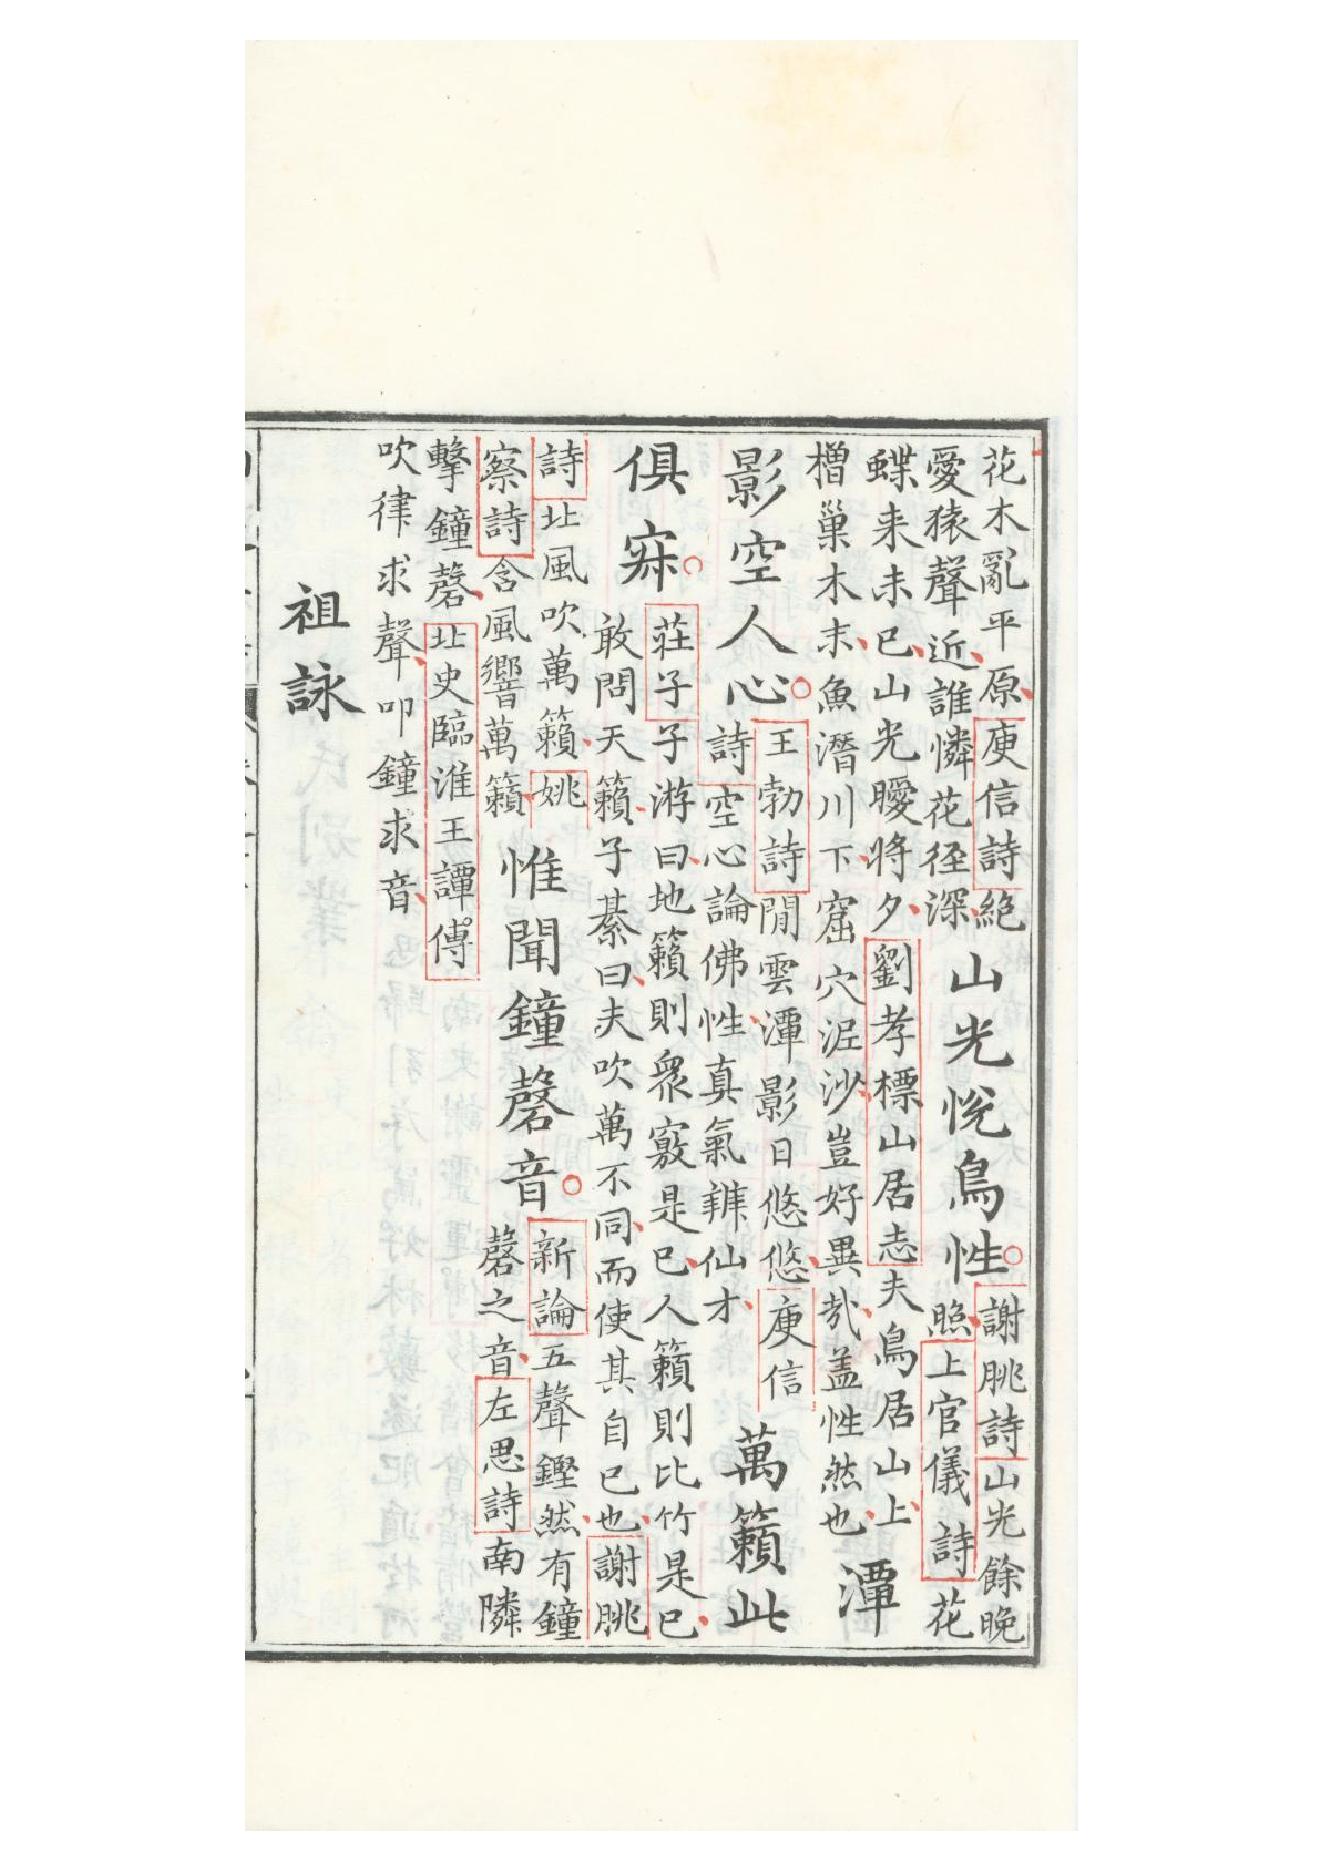 花木亂平原庾信詩絕
愛猿聲近誰憐花徑深
山光悅鳥性
謝朓詩山光餘晚
照上官儀詩花
蝶来未已山光曖將夕劉孝標山居志夫鳥居山上
橧巢木末魚潛川下窟穴泥沙豈好異哉盖性然也
潭
影空人心
王勃詩閒雲潭影日悠悠庾信
詩空心論佛性真氣辨仙才
萬籟此
俱寂
莊子子游曰地籟則衆竅是已人籟則比竹是已
敢問天籟子綦曰夫吹萬不同而使其自已也謝朓
詩北風吹萬籟姚
察詩含風響萬籟
惟聞鐘磬音
新論五聲鏗然有鐘
磬之音左思詩南隣
擊鐘磬北史臨淮王譚傳
吹律求聲叩鐘求音
祖詠